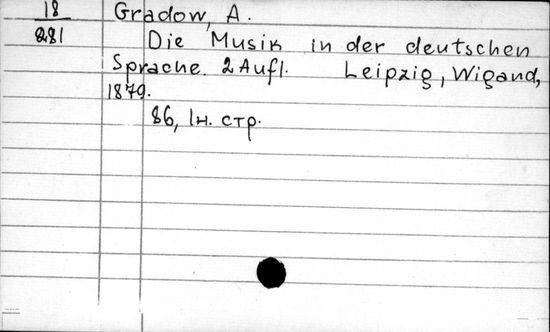 18 Gradow, A.
281 Die Musik in der deutschen
Sprache. 2 Aufl. Leipzig, Wigand,
1879.
86, 1 н. стр.